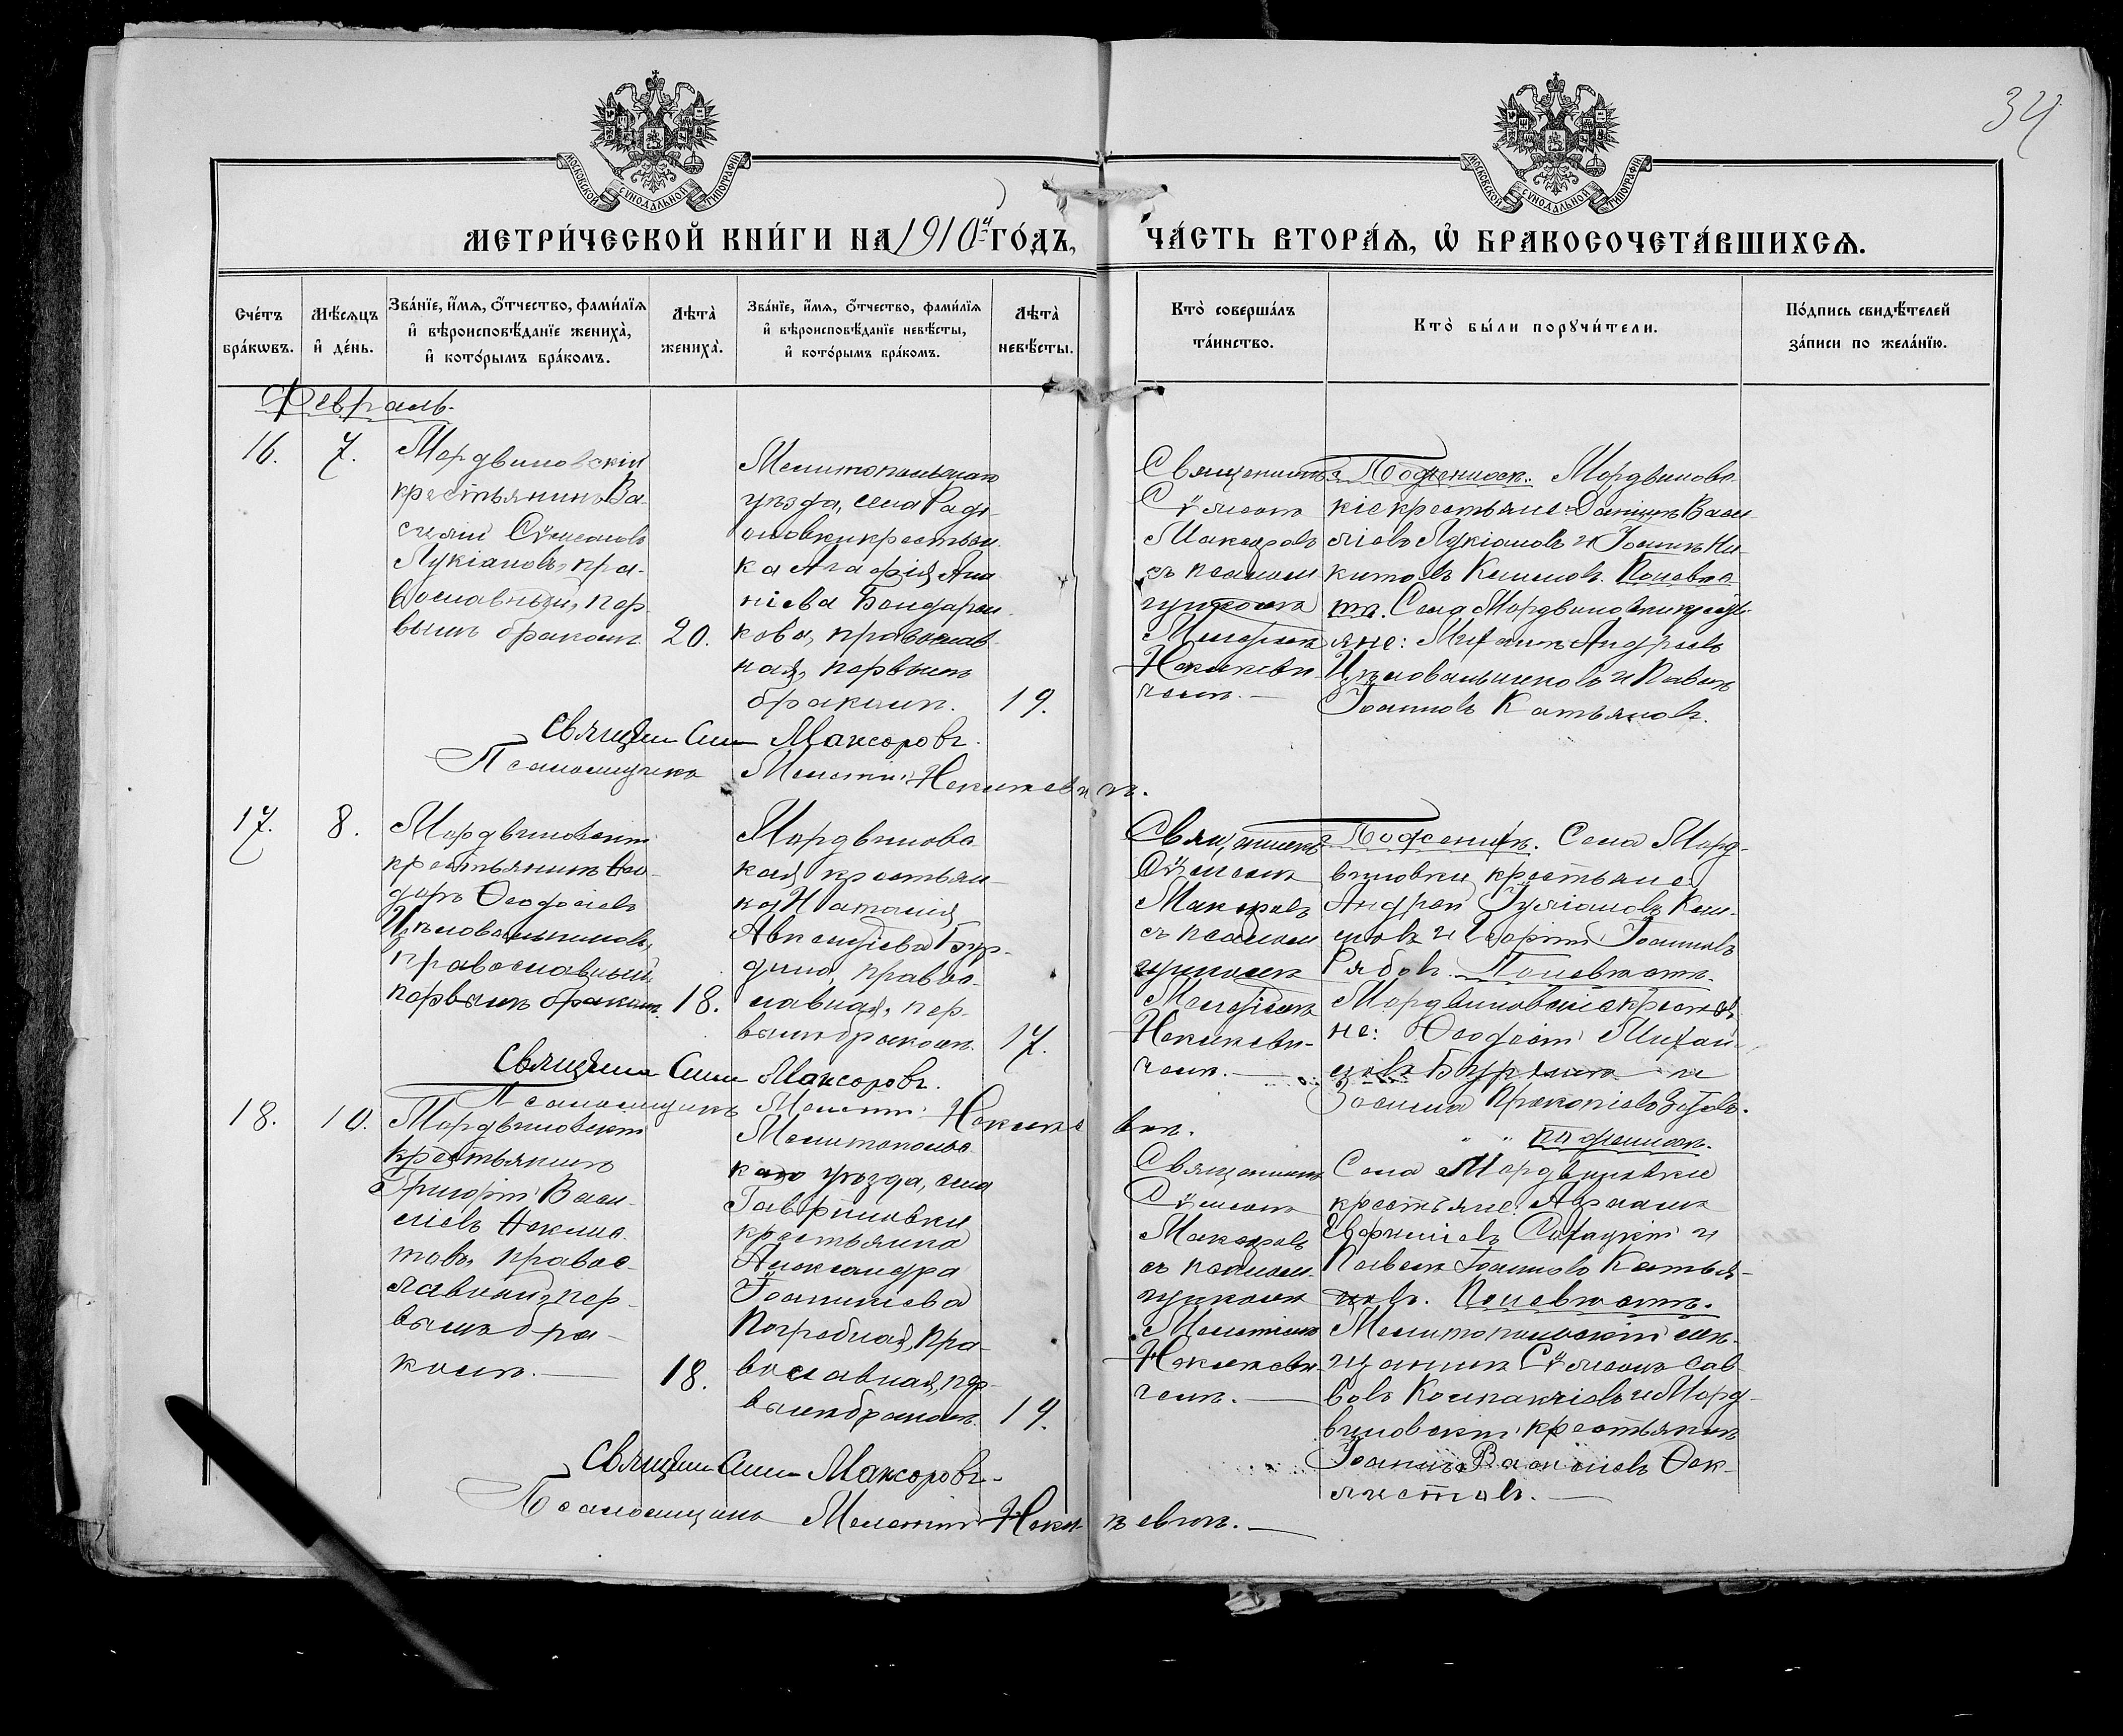 34
МОСКОВСКОЙ СѴНОДАЛЬНОЙ ТИПОГРАФІИ
МОСКОВСКОЙ СѴНОДАЛЬНОЙ ТИПОГРАФІИ
МЕТРИ́ЧЕСКОЙ КНИ́ГИ НА 1910й ГО́ДЪ,
ЧА́СТЬ ВТОРА́Ѧ, Ѽ БРАКОСОЧЕТА́ВШИХСѦ.
Сче́тъ бра́кѡвъ.
Мѣ́сѧцъ и҆ де́нь.
Зва́нїе, и҆́мѧ, ѻ҆́тчество, фами́лїѧ и҆ вѣроисповѣ́данїе жениха̀, и҆ кото́рымъ бра́комъ.
Лѣта̀ жениха̀.
Зва́нїе, и҆́мѧ, ѻ҆́тчество, фами́лїѧ и҆ вѣроисповѣ́данїе невѣ́сты, и҆ кото́рымъ бра́комъ.
Лѣта̀ невѣ́сты.
Кто̀ соверша́лъ та́инство.
Кто̀ бы́ли порꙋчи́тели.
По́дпись свидѣ́телей за́писи по жела́нїю.
Февраль.
16.
7.
Мордвиновскій
крестьянинъ Ва-
силій Сѵмеоновъ
Лукіановъ, пра-
вославный, пер-
вымъ бракомъ.
20.
Мелитопольскаго
уѣзда, села Радi-
оновки крестьян-
ка Агафія Ана-
ніева Бондарен-
кова, православ-
ная, первымъ
бракомъ.
19.
Священникъ
Сѵмеонъ
Максоровъ
съ псалом-
щикомъ
Мелетіемъ
Некикеви-
чемъ.
По женихѣ: Мордвиновс-
кіе крестьяне: Даніилъ Васи-
ліевъ Лукіановъ и Іоаннъ Ни-
китовъ Климовъ. По невѣс-
тѣ: Села Мордвиновки кресть-
яне: Михаилъ Андреевъ
Цѣловальниковъ и Павелъ
Іоанновъ Катьяновъ.
Священ. Сим. Максоровъ.
Псаломщикъ Мелетій Некикевичъ.
17.
8.
Мордвиновскій
крестьянинъ Ѳео-
доръ Ѳеодосіевъ
Цѣловальниковъ,
православный,
первымъ бракомъ.
18.
Мордвиновс-
кая крестьян-
ка Наталія
Авксентіева Бур-
дина, правос-
лавная, пер-
вымъ бракомъ.
17.
Священникъ
Сѵмеонъ
Максоровъ
съ псалом-
щикомъ
Мелетіемъ
Некикеви-
чемъ.
По женихѣ: Села Морд-
виновки крестьяне:
Андрей Іуліановъ Кли-
мовъ и Георгій Іоанновъ
Рябовъ. По невѣстѣ:
Мордвиновскіе крестья-
не: Ѳеодосій Михай-
ловъ и
Зосима Прокопіевъ Зотовъ.
Священ. Сим. Максоровъ.
Псаломщикъ Мелетій Некикевичъ.
18.
10.
Мордвиновскій
крестьянинъ
Григорій Васи-
ліевъ Ѳеклис-
товъ, правос-
лавный, пер-
вымъ бра-
комъ.
18.
Мелитопольс-
каго уѣзда, села
Гавриловки
крестьянка
Александра
Іоанникіева
Погребная, пра-
вославная, пер-
вымъ бракомъ.
19.
Священникъ
Сѵмеонъ
Максоровъ
съ псалом-
щикомъ
Мелетіемъ
Некикеви-
чемъ.
По женихѣ:
Села Мордвиновки
крестьяне: Авраамъ
Евфиміевъ и
Павелъ Іоанновъ Катья-
новъ. По невѣстѣ:
Мелитопольскій мѣ-
щанинъ Сѵмеонъ Сав-
вовъ и Морд-
виновскій крестьянинъ
Іоаннъ Василіевъ Ѳек-
листовъ.
Священ. Сим. Максоровъ.
Псаломщикъ Мелетій Некикевичъ.